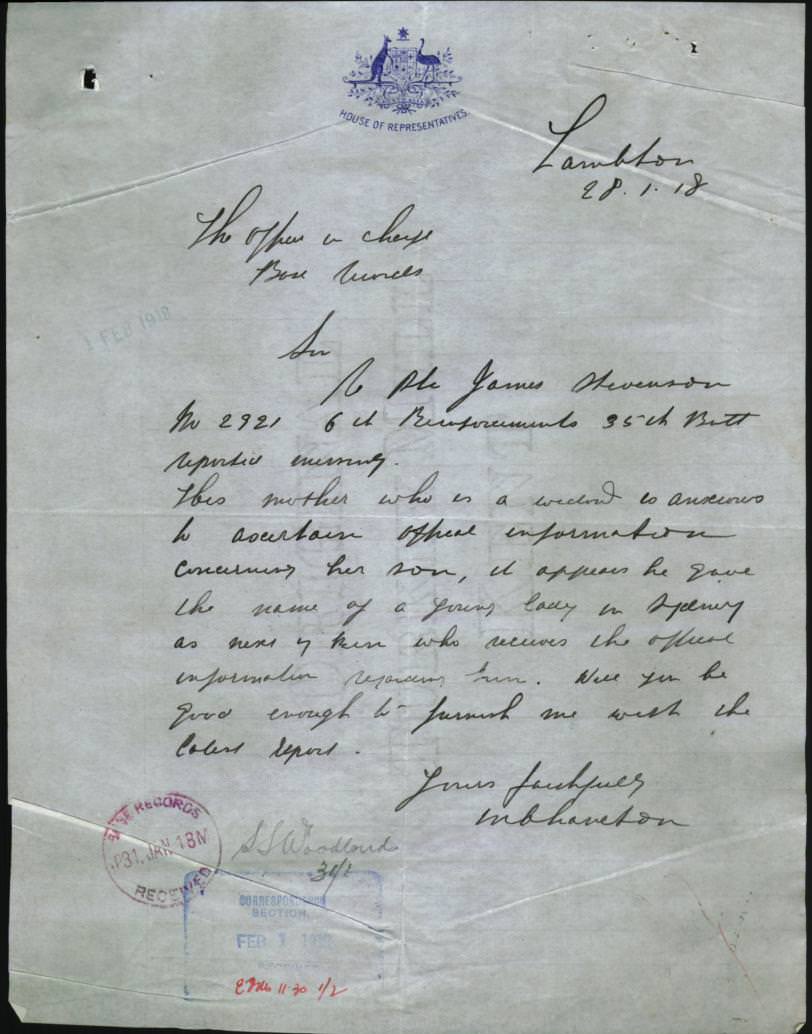 HOUSE OF REPRESENTATIVES
Lambton
28.1.18
The Officer in charge
Base Records
1 FEB 1918
Sir
Re Pte James Stevenson
No 2921 6th Reinforcements 35th Batt
reported missing.
His mother who is a widow is anxious
to ascertain official information
concerning her son, it appears he gave
the name of a young lady in Sydney
as next of kin who receives the official
information regarding him. Will you be
good enough to furnish me with the
latest report.
Yours faithfully
BASE RECORDS
31. JAN 18
RECEIVED
Woodland
31/1
CORRESPONDENCE
SECTION.
FEB 1
11.30 1/2